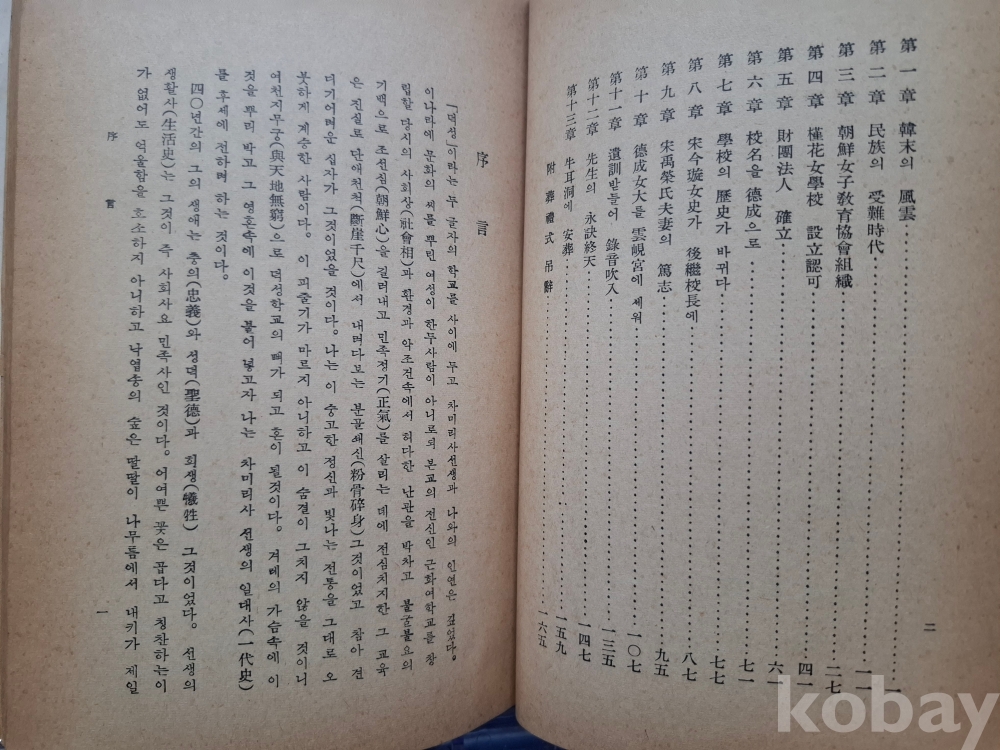 二
第一章 韓末의 風雲……一
第二章 民族의 受難時代……一一
第三章 朝鮮女子敎育協會組織……二七
第四章 槿花女學校 設立認可……四一
第五章 財團法人 確立……六一
第六章 校名을 德成으로……七一
第七章 學校의 歷史가 바뀌다……七七
第八章 宋今璇女史가 後繼校長에……八七
第九章 宋禹榮氏夫妻의 篤志……九五
第十章 德成女大를 雲峴宮에 세워……一〇七
第十一章 遺訓받들어 錄音吹入……一三五
第十二章 先生의 永訣終天……一四七
第十三章 牛耳洞에 安葬……一五九
附 葬禮式 弔辭……一六五
序 言
「덕성」이라는 두 글자의 학교를 사이에 두고 차미리사선생과 나와의 인연은 깊었다.
이나라에 문화의 씨를 뿌린 여성이 한두사람이 아니로되 본교의 전신인 근화여학교를 창
립할 당시의 사회상(社會相)과 환경과 악조건속에서 허다한 난관을 박차고 불굴불요의
기백으로 조선심(朝鮮心)을 길러내고 민족정기(正氣)를 살리는 데에 전심치지한 그 교육
은 진실로 단애천척(斷崖千尺)에서 내려다보는 분골쇄신(粉骨碎身)그것이었고 참아 견
디기어려운 십자가 그것이었을 것이다. 나는 이 숭고한 정신과 빛나는 전통을 그대로 오
롯하게 계승한 사람이다. 이 피줄기가 마르지 아니하고 이 숨결이 그치지 않을 것이니
여천지무궁(與天地無窮)으로 덕성학교의 뼈가 되고 혼이 될것이다. 겨레의 가슴속에 이
것을 뿌리 박고 그 영혼속에 이것을 불어 넣고자 나는 차미리사 선생의 일대사(一代史)
를 후세에 전하려 하는 것이다.
四〇년간의 그의 생애는 충의(忠義)와 성덕(聖德)과 희생(犧牲) 그것이었다. 선생의
생활사(生活史)는 그것이 즉 사회사요 민족사인 것이다. 어여쁜 꽃은 곱다고 칭찬하는이
가 없어도 억울함을 호소하지 아니하고 낙엽송의 숲은 딸딸이 나무틈에서 내키가 제일
序 言
一
kobay